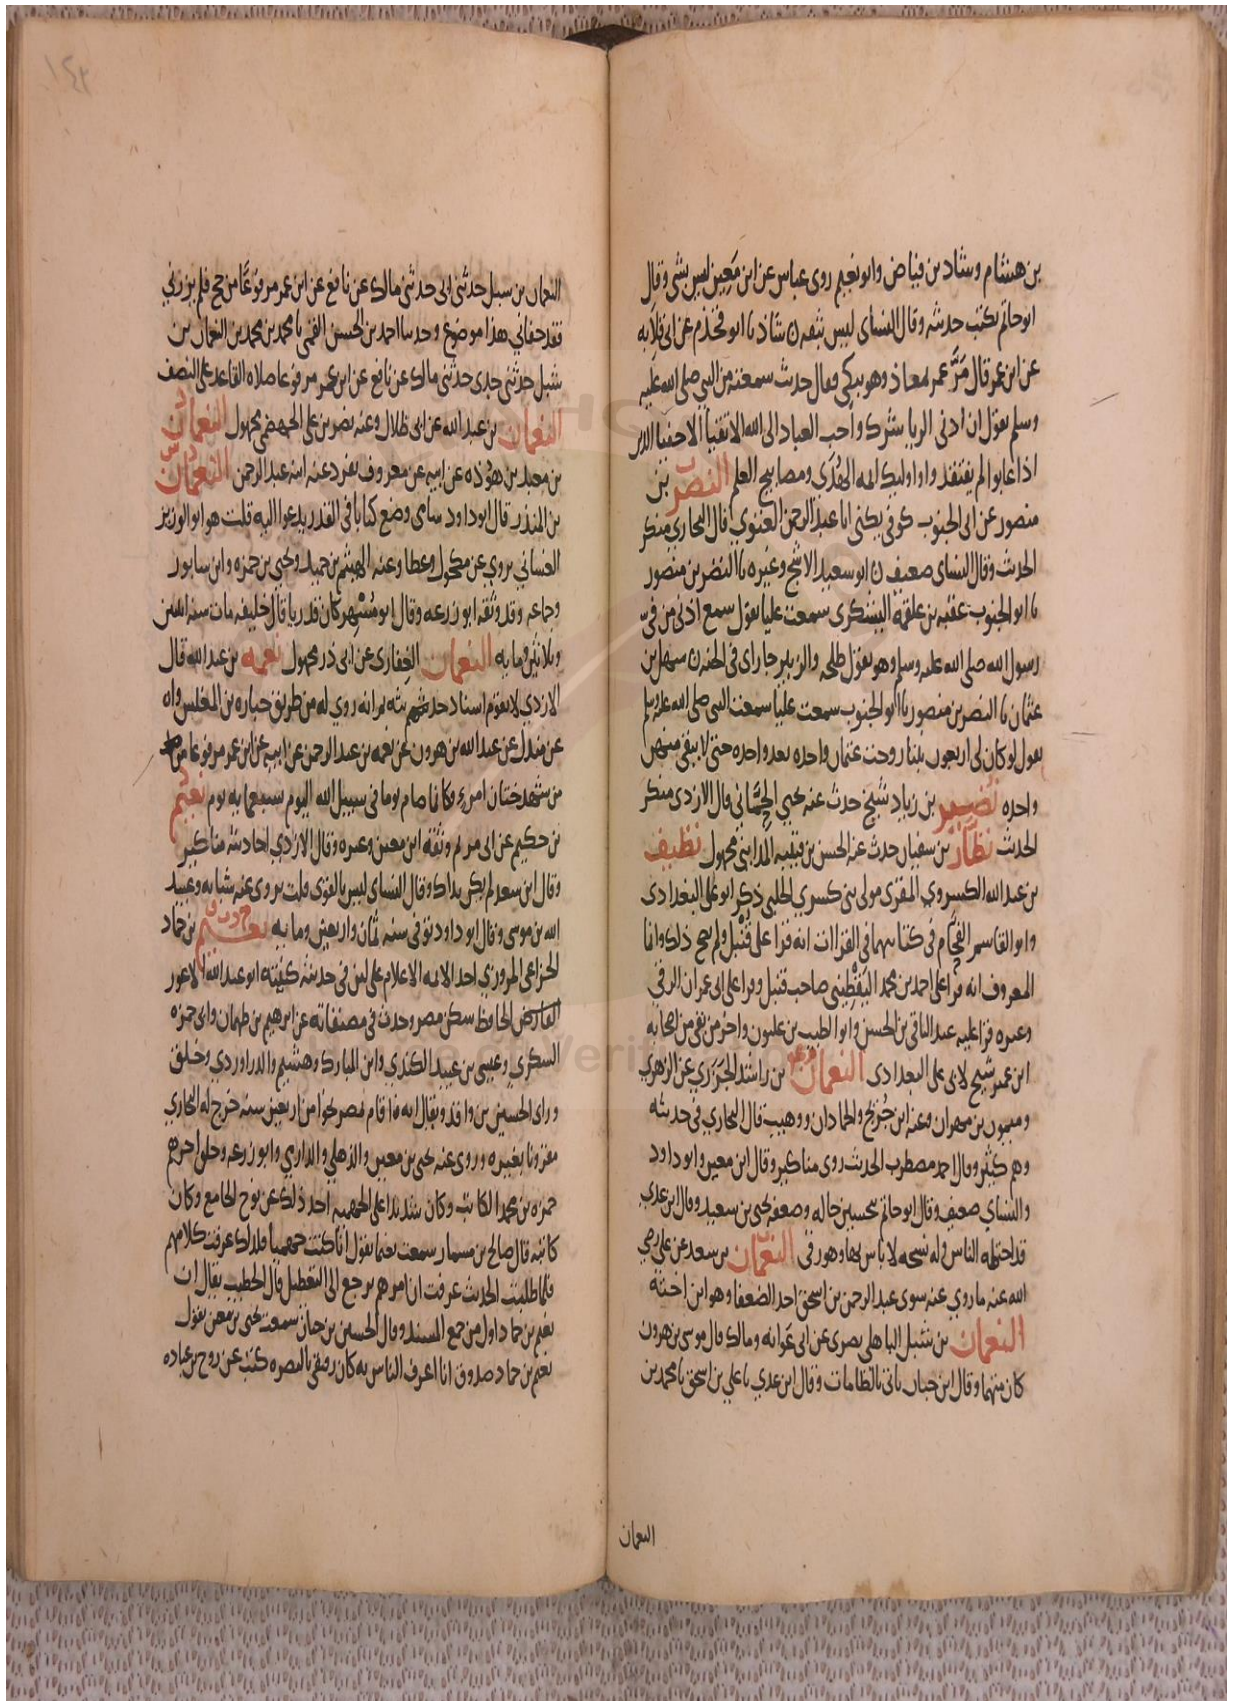 بن هشام وشاد بن فياض وابو نعيم روى عباس عن ابن معين ليس بشى وقال
ابو حاتم يكتب حديثه وقال النساى ليس بثقه ن شاذ نا ابو قحذم عن ابى قلابه
عن ابن عمر قال مَرَّ عمر بمعاذ وهو يبكى فقال حديث سمعته من النبي صلى الله عليه
وسلم يقول ان ادنى الريا شرك واحب العباد الى الله الاتقيا الاخفيا الذين
اذا غابوا لم يفتقدوا اوليك ايمه الهُدَى ومصابيح العلم النضر بن
منصور عن ابى الجنوب كوفى يكنى ابا عبد الرحمن العنوي قال البخاري منكر
الحديث وقال النساى ضعيف ن ابو سعيد الاشج وغيره نا النضر بن منصور
نا ابو الجنوب عقبه بن علقمة اليشكرى سمعت عليا يقول سمع اذنى من فى
رسول الله صلى الله عليه وسلم وهو يقول طلحه والزبير جاراى فى الجنه ن سهل بن
عثمان نا النضر بن منصور نا ابو الجنوب سمعت عليا سمعت النبى صلى الله عليه وسلم
يقول لو كان لى اربعون بنتا زوجت عثمان واحده بعد واحده حتى لا يبقى منهن
واحده نصير بن زياد شيخ حدث عنه يحيى الحِمَّاني قال الازدى منكر
الحديث نظّار بن سفيان حدث عنه الحسن بن قتيبه المدايني مجهول نظيف
بن عبد الله الكسروي المقرى مولى بنى كسري الحلبى ذكر ابو على البغدادى
وابو القاسم الفحّام فى كتابيهما فى القراات انه قرا على قُنْبل ولم يصح ذلك وانما
المعروف انه قرا على احمد بن محمد اليَقْطِينى صاحب قنبل وقرا على ابى عمران الرقي
وغيره قرا عليه عبد الباقى بن الحسن وابو الطيب بن غلبون واخر من بقى من اصحابه
ابن عمير شيخ لابى على البغدادى النعمان بن راشد الجَزَري عن الزهري
وميمون بن مهران وعنه ابن جُرَيْج والحمادان ووهيب قال البخاري فى حديثه
وهم كثير وقال احمد مضطرب الحديث روى مناكير وقال ابن معين وابو داود
والنساي ضعيف وقال ابو حاتم تحسين حاله وضعفه يحيى بن سعيد وقال ابن عدي
قد احتمله الناس وله نسخه لا باس بها وهو رقى النعمان بن سعد عن على رضى
الله عنه ما روي عنه سوى عبد الرحمن بن اسحق احد الضعفا وهو ابن اخته
النعمان بن شبل الباهلى بصرى عن ابى عَوانه ومالك قال موسى بن هرون
كان متهما وقال ابن حبان ياتى بالطامات وقال ابن عدي نا علي بن اسحق نا محمد بن
النعمان
١٤٢
النعمان بن سبل حدثنى ابى حدثنى مالك عن نافع عن ابن عمر مرفوعًا من حج فلم يزرني
فقد جفاني هذا موضوع وحدثنا احمد بن الحسن القمى نا محمد بن محمد بن النعمان بن
شبل حدثنى جدى حدثنى مالك عن نافع عن ابن عمر مرفوعا صلاة القاعد على النصف
النعمان بن عبد الله عن ابى ظلال وعنه نصر بن على الجهضمى مجهول النعمان
بن معبد بن هوذه عن ابيه عن معروف تفرد عنه ابنه عبد الرحمن النعمان
بن المنذر قال ابو داود شامى وضع كتابا فى القدر يدعوا اليه قلت هو ابو الوزير
الغساني يروي عن مكحول وعطا وعنه الهيثم بن حميد ويحيى بن حمزه وابن سابور
وجماعه وقد وثقه ابو زرعه وقال ابو مُسْهِر كان قدريا قال خليفه مات سنه اثنين
وثلاثين ومايه النعمان الغِفارى عن ابى ذر مجهول نعمه بن عبد الله قال
الازدي لا يقوم اسناد حديثه ثم انه روي له من طريق جباره بن المغلس واه
عن مندل عن عبد الله بن هرون عن نعمه بن عبد الرحمن عن ابيه عن ابن عمر مرفوعا
من شهد ختان امرء فكانما صام يوما فى سبيل الله اليوم بسبعمايه يوم نعيم
بن حكيم عن ابى مريم وثقه ابن معين وغيره وقال الازدي احاديثه مناكير
وقال ابن سعد لم يكن بذاك وقال النساى ليس بالقوى قلت يروى عنه شبابه وعبيد
الله بن موسى وقال ابو داود توفى سنه ثمان واربعين ومايه نعيم بن حماد
الخزاعى المروزي احد الايمه الاعلام على لين فى حديثه كنيته ابو عبد الله الاعور
الفارض الحافظ سكن مصر وحدث فى مصنفاته عن ابرهيم بن طهمان وابى حمزه
السكري وعيسى بن عبيد الكندي وابن المبارك وهشيم والدراوردي وخلق
وراى الحسين بن واقد ويقال انه اقام بمصر نحوا من اربعين سنه خرج له البخاري
مقرونا بغيره وروى عنه يحيى بن معين والذهلي والدارمي وابو زرعه وخلق اخرهم
حمزه بن محمد الكاتب وكان شديدا على الجهميه اخذ ذلك عن نوح الجامع وكان
كاتبه قال صالح بن مسمار سمعت نعيما يقول انا كنت جهميا فلذلك عرفت كلامهم
فلما طلبت الحديث عرفت ان امرهم يرجع الى التعطيل قال الخطيب يقال ان
نعيم بن حماد اول من جمع المسند وقال الحسين بن حبان سمعت يحيى بن معين يقول
نعيم بن حماد صدوق انا اعرف الناس به كان رفيقى بالبصره كتب عن روح بن عباده